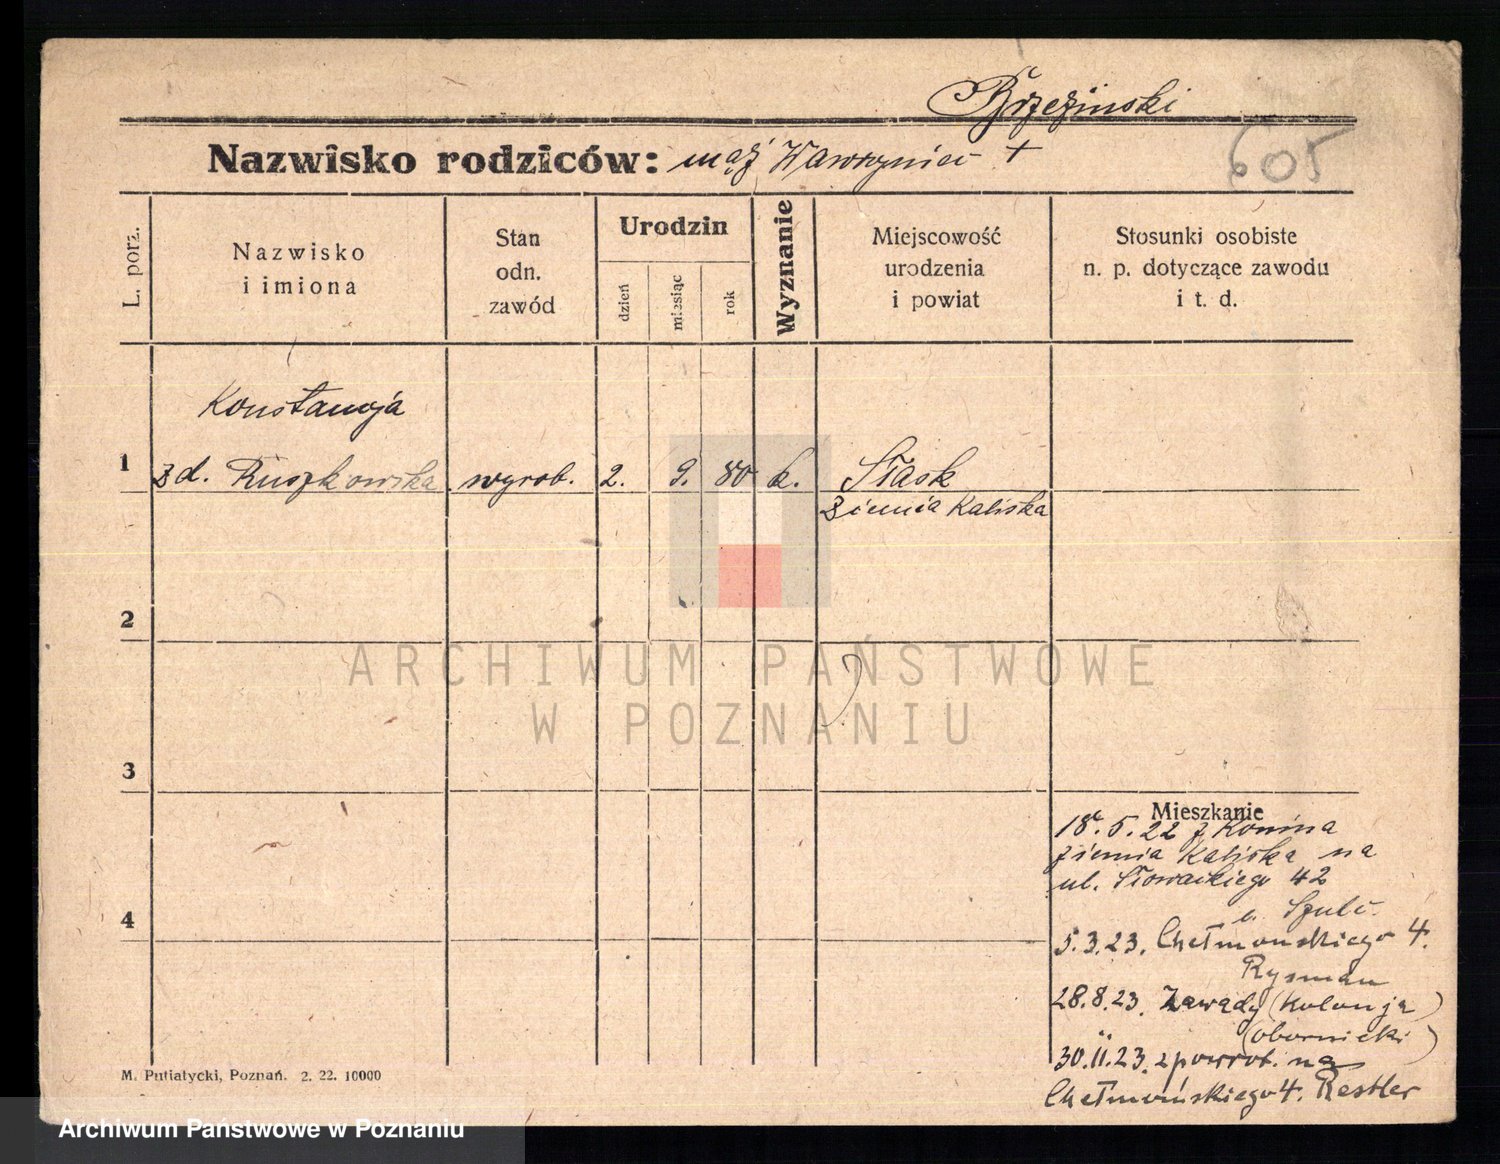 Brzeziński
Nazwisko rodziców: mąż Wawrzyniec +
605
L. porz.
Nazwisko
i imiona
Stan
odn.
zawód
Urodzin
dzień
miesiąc
rok
Wyznanie
Miejscowość
urodzenia
i powiat
Stosunki osobiste
n. p. dotyczące zawodu
i t. d.
Konstancja
1 zd. Ruszkowska wyrob. 2. 9. 80 k. Stask
Ziemia Kaliska
2
ARCHIWUM PAŃSTWOWE
W POZNANIU
3
Mieszkanie
18.5.22 z Konina
ziemia Kaliska na
ul. Słowackiego 42
u. Szulc.
4
5.3.23. Chełmonskiego 4.
Rysman
28.8.23. Zawady (Kolonja)
(obornicki)
30.11.23. zpowrot. na
Chełmońskiego 4. Restler
M. Putiatycki, Poznań. 2. 22. 10000
Archiwum Państwowe w Poznaniu